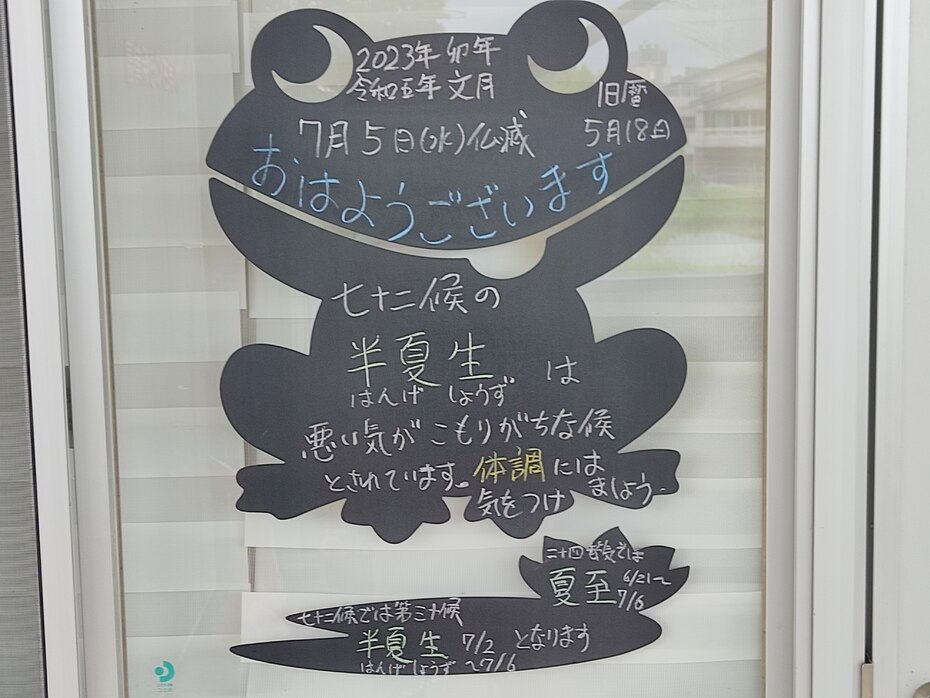 2023年 卯年
令和五年 文月
旧暦
5月18日
7月5日(水)仏滅
おはようございます
七十二候の
半夏生 は
はんげ しょうず
悪い気がこもりがちな候
とされています。体調には
気をつけましょう。
二十四節気では
夏至 6/21〜
7/6
七十二候では第三十候
半夏生 7/2 となります
はんげ しょうず 〜7/6